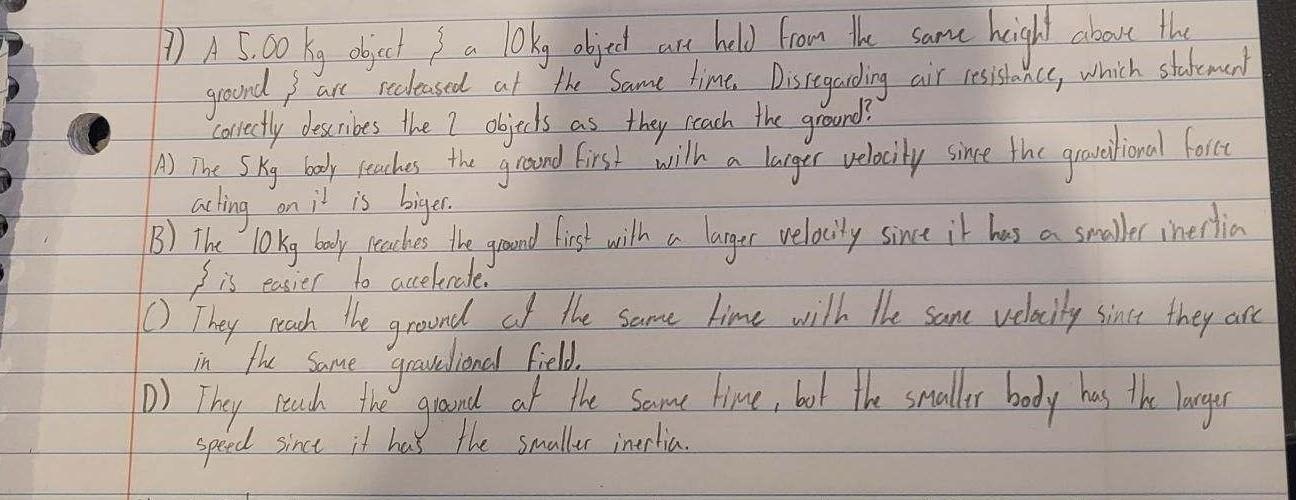 7) A 5.00 kg object & a 10kg object are held from the same height above the
ground & are recleased at the same time. Disregarding air resistance, which statement
correctly describes the 2 objects as they reach the ground?
A) The 5 kg body reaches the ground first with a larger velocity since the graveitional force
acting on it is biger.
B) The 10kg body reaches the ground first with a larger velocity since it has a smaller inertia
& is easier to accelerate.
C) They reach the ground at the same time with the same velocity since they are
in the same gravetional field.
D) They reach the ground at the same time, but the smaller body has the larger
speed since it has the smaller inertia.